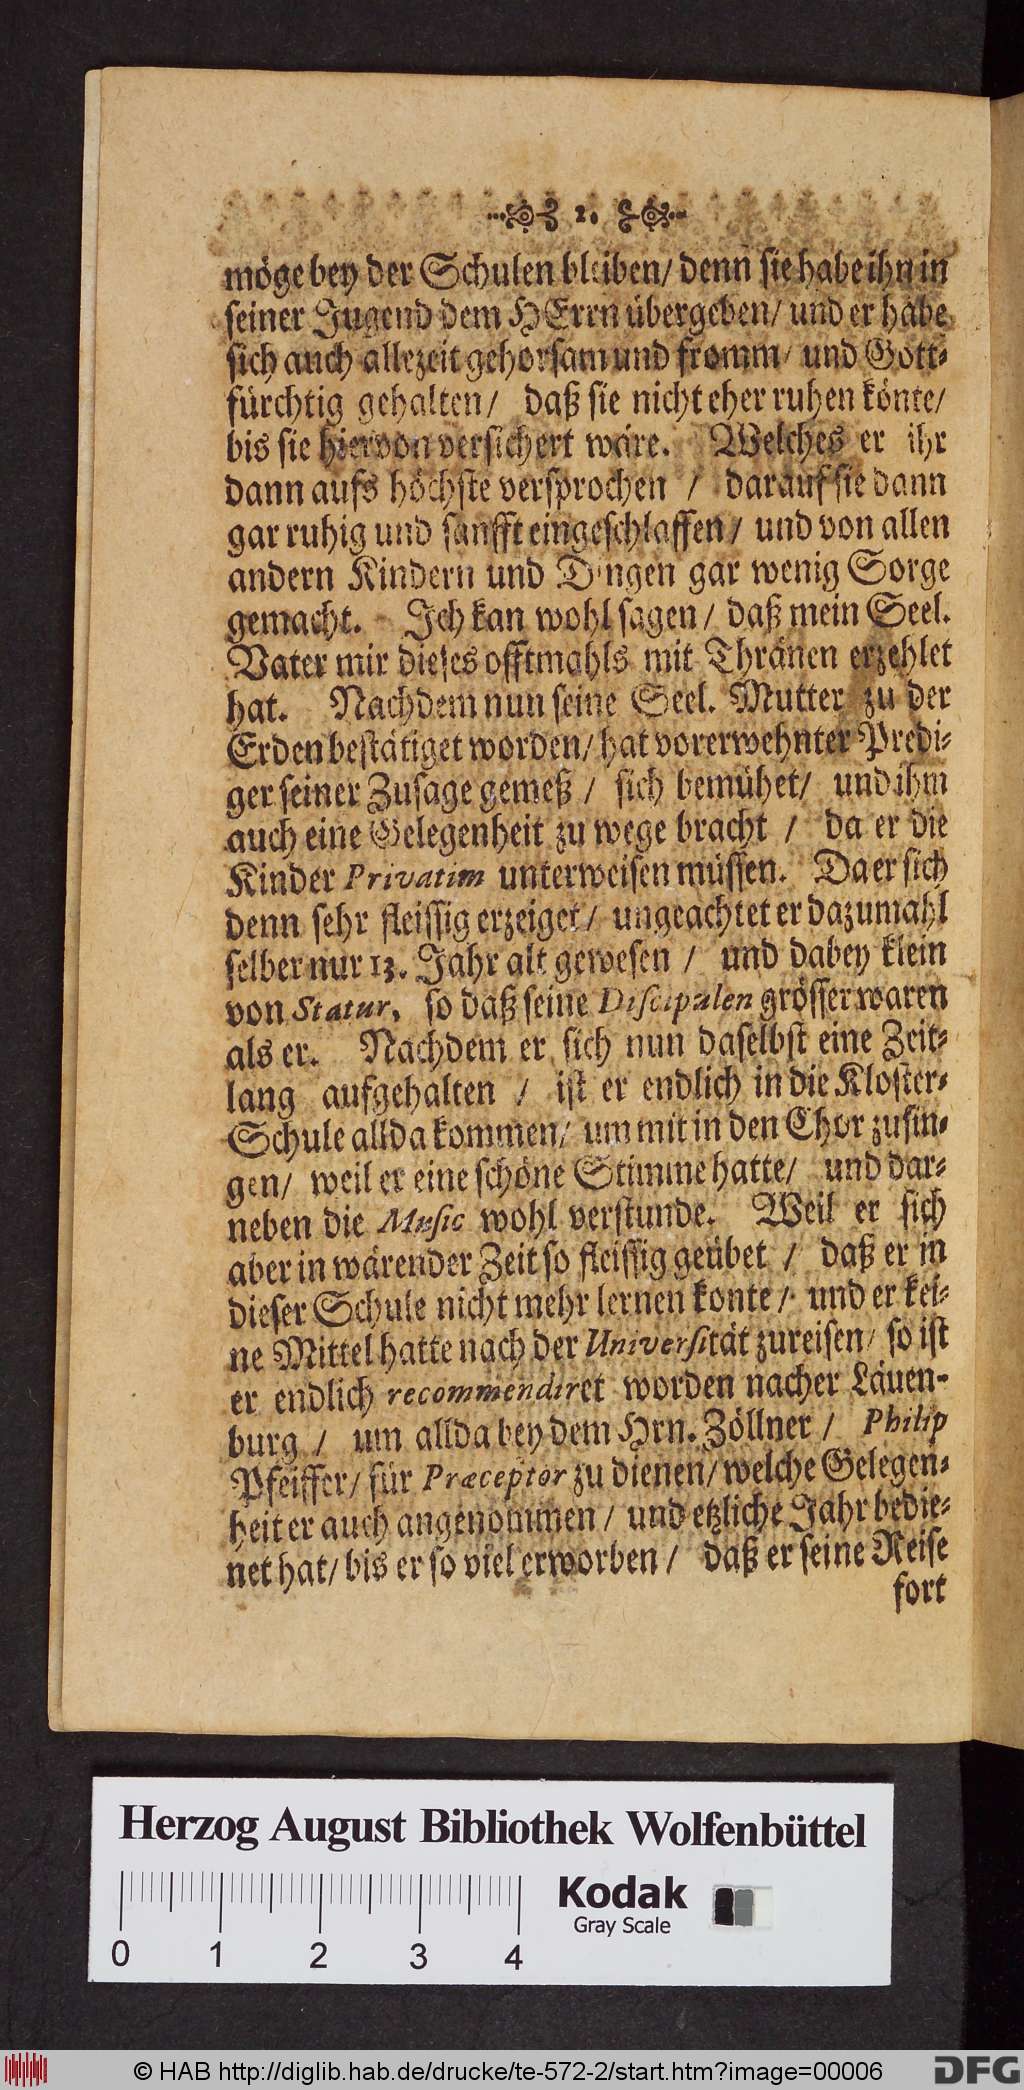 2.
möge bey der Schulen bleiben/ denn sie habe ihn in
seiner Jugend dem HErrn übergeben/ und er habe
sich auch allezeit gehorsam und fromm/ und Gott-
fürchtig gehalten/ daß sie nicht eher ruhen könte/
bis sie hiervon versichert wäre. Welches er ihr
dann aufs höchste versprochen / darauf sie dann
gar ruhig und sanfft eingeschlaffen/ und von allen
andern Kindern und Dingen gar wenig Sorge
gemacht. Ich kan wohl sagen/ daß mein Seel.
Vater mir dieses offtmahls mit Thränen erzehlet
hat. Nachdem nun seine Seel. Mutter zu der
Erden bestätiget worden/ hat vorerwehnter Predi-
ger seiner Zusage gemeß / sich bemühet/ und ihm
auch eine Gelegenheit zu wege bracht / da er die
Kinder Privatim unterweisen müssen. Da er sich
denn sehr fleissig erzeiget/ ungeachtet er dazumahl
selber nur 13. Jahr alt gewesen / und dabey klein
von Statur, so daß seine Discipulen grösser waren
als er. Nachdem er sich nun daselbst eine Zeit-
lang aufgehalten / ist er endlich in die Kloster-
Schule allda kommen/ um mit in den Chor zu sin-
gen/ weil er eine schöne Stimme hatte/ und dar-
neben die Music wohl verstunde. Weil er sich
aber in wärender Zeit so fleissig geübet / daß er in
dieser Schule nicht mehr lernen konte/ und er kei-
ne Mittel hatte nach der Universität zu reisen/ so ist
er endlich recommendiret worden nacher Läuen-
burg / um allda bey dem Hrn. Zöllner / Philip
Pfeiffer/ für Præceptor zu dienen/ welche Gelegen-
heit er auch angenommen / und etzliche Jahr bedie-
net hat/ bis er so viel erworben / daß er seine Reise
fort
Herzog August Bibliothek Wolfenbüttel
Kodak
Gray Scale
0 1 2 3 4
© HAB http://diglib.hab.de/drucke/te-572-2/start.htm?image=00006
DFG